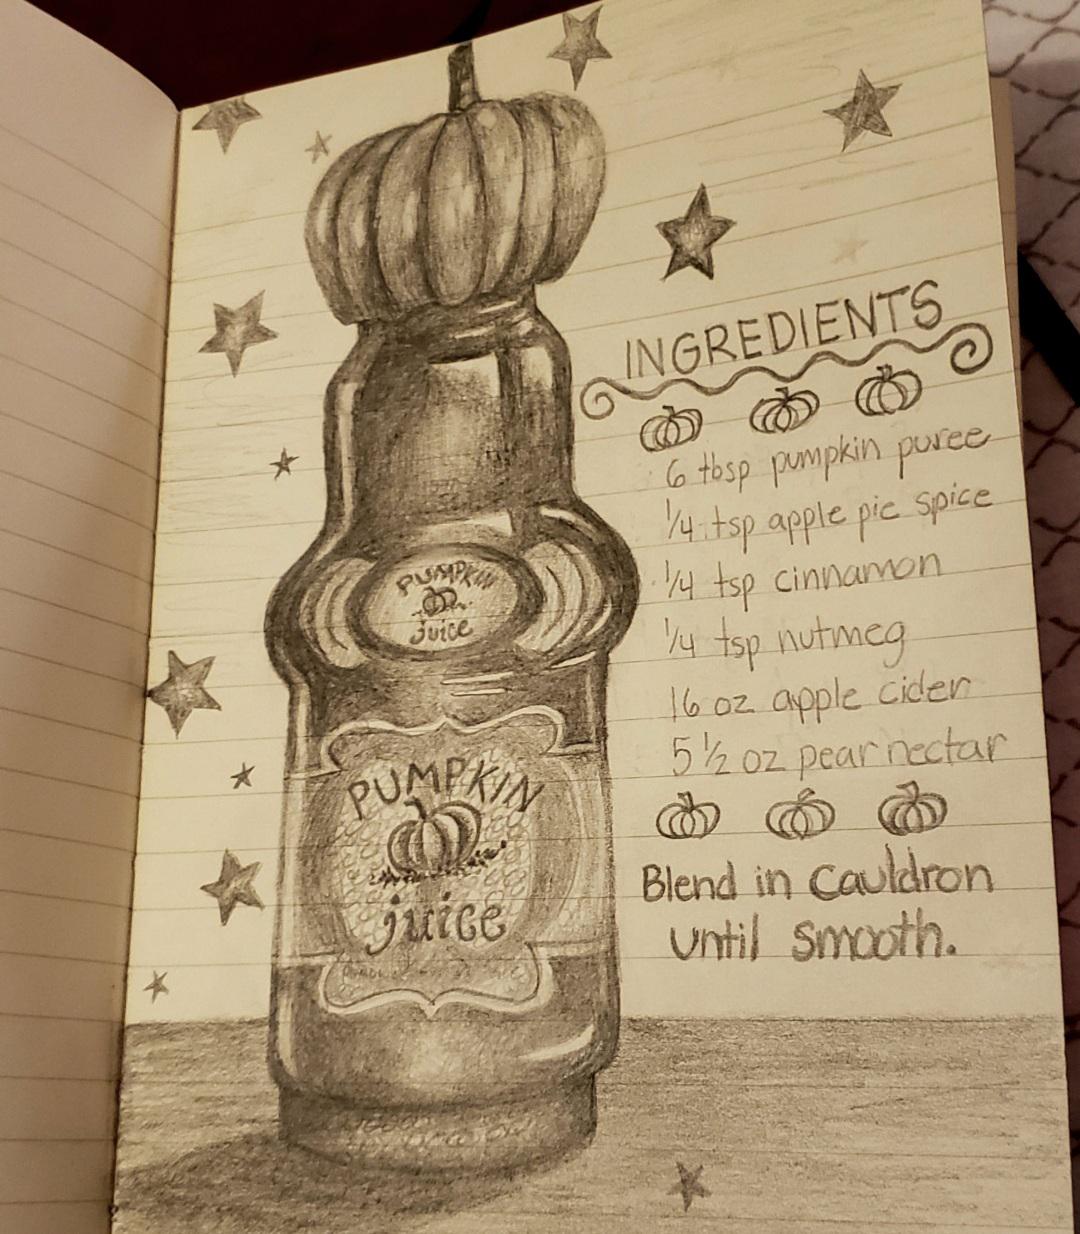 INGREDIENTS
6 tbsp pumpkin puree
1/4 tsp apple pie spice
1/4 tsp cinnamon
1/4 tsp nutmeg
16 oz apple cider
5 1/2 oz pear nectar
Blend in Cauldron
until smooth.
PUMPKIN
juice
PUMPKIN
juice